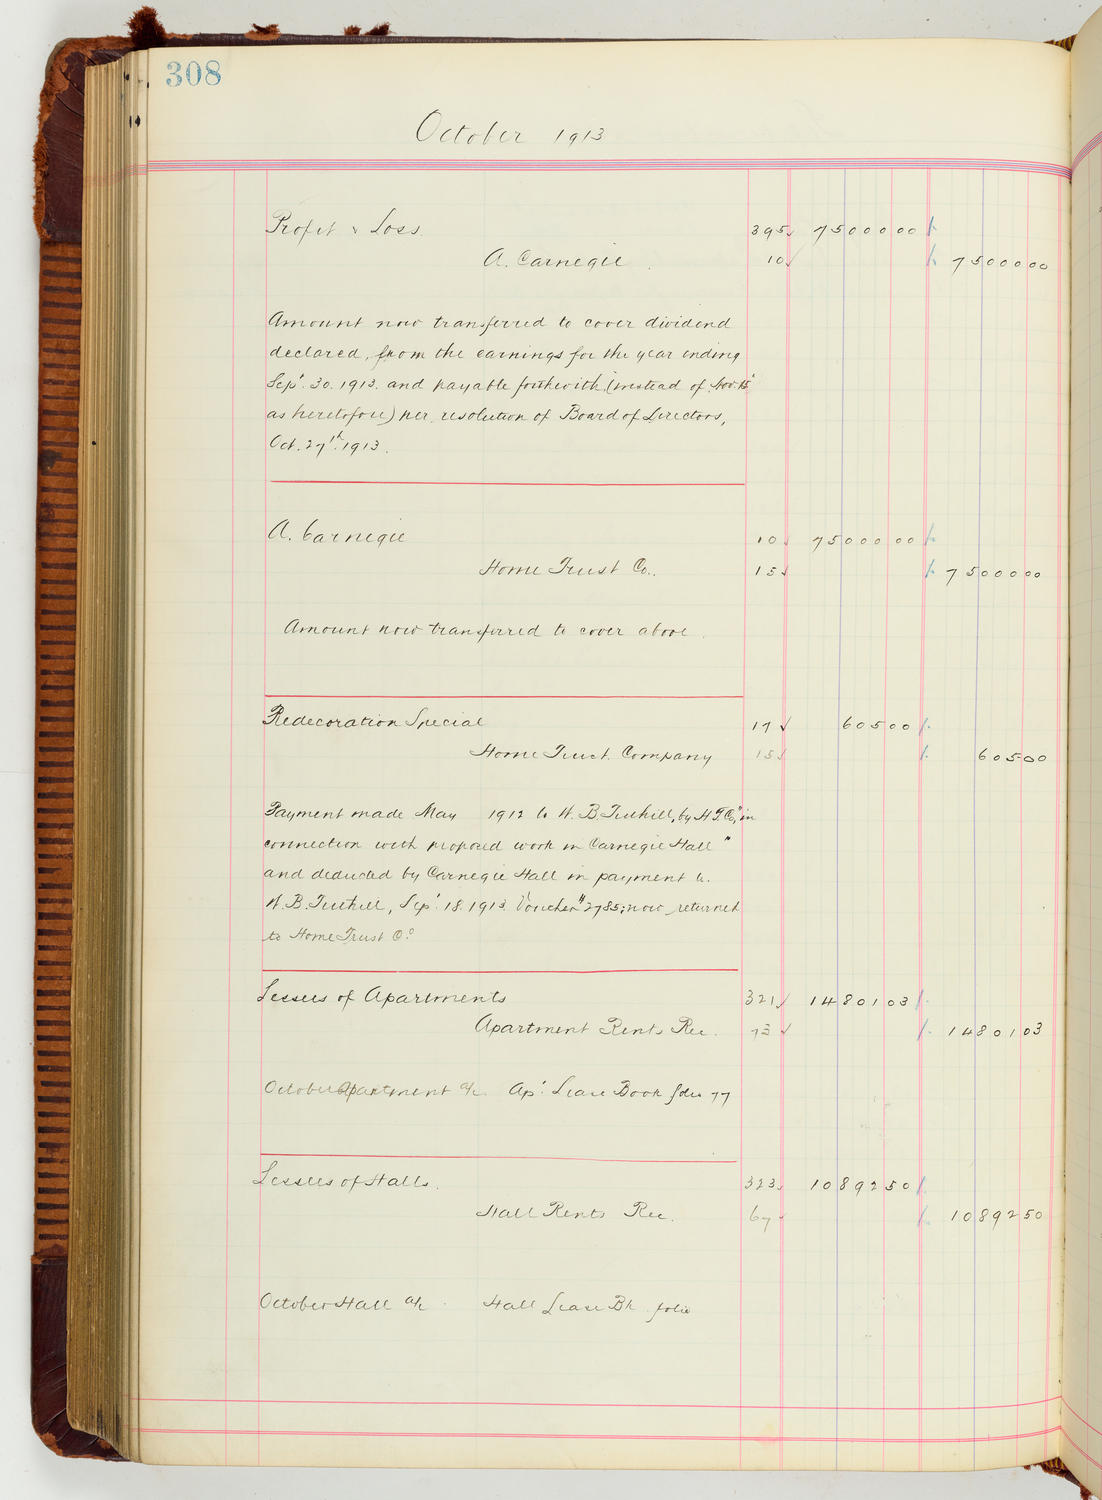 308
October 1913
Profit & Loss 395 75000 00
A. Carnegie 10 75000 00
Amount now transferred to cover dividend
declared, from the earnings for the year ending
Sept. 30. 1913. and payable forthwith, (instead of Nov. 15
as heretofore) per resolution of Board of Directors,
Oct. 27th. 1913.
A. Carnegie 10 75000 00
Home Trust Co. 15 75000 00
Amount now transferred to cover above.
Redecoration Special 17 605 00
Home Trust Company 15 605 00
Payment made May 1912 to W. B. Tuthill, by H.T.Co, "in
connection with proposed work in Carnegie Hall"
and deducted by Carnegie Hall in payment to
W. B. Tuthill, Sept. 18. 1913. Voucher # 2785; now returned
to Home Trust Co.
Lessees of Apartments 321 14801 03
Apartment Rents Rec. 73 14801 03
October Apartment a/c Apt. Lease Book folio 77
Lessees of Halls. 323 10892 50
Hall Rents Rec. 67 10892 50
October Hall a/c Hall Lease Bk. folio